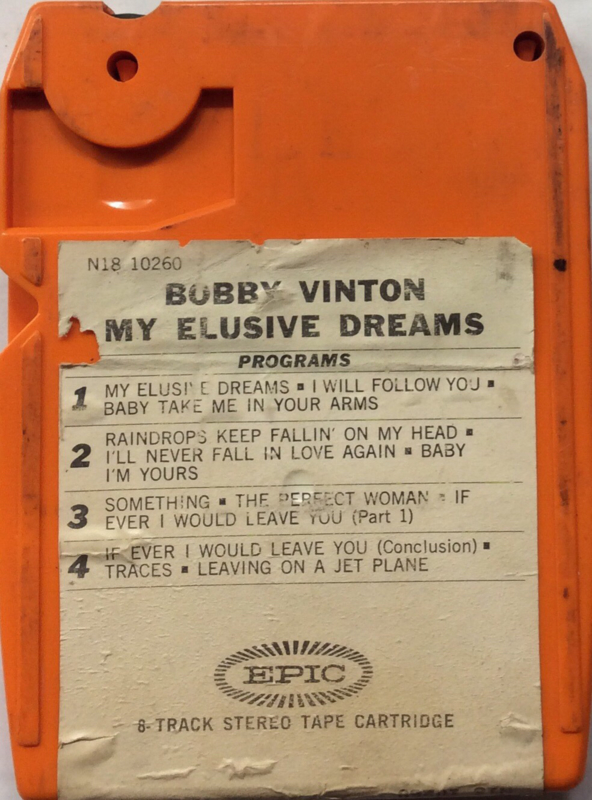 N18 10260
BOBBY VINTON
MY ELUSIVE DREAMS
PROGRAMS
1 MY ELUSIVE DREAMS ▪ I WILL FOLLOW YOU ▪
BABY TAKE ME IN YOUR ARMS
2 RAINDROPS KEEP FALLIN' ON MY HEAD ▪
I'LL NEVER FALL IN LOVE AGAIN ▪ BABY
I'M YOURS
3 SOMETHING ▪ THE PERFECT WOMAN ▪ IF
EVER I WOULD LEAVE YOU (Part 1)
4 IF EVER I WOULD LEAVE YOU (Conclusion) ▪
TRACES ▪ LEAVING ON A JET PLANE
EPIC
8-TRACK STEREO TAPE CARTRIDGE